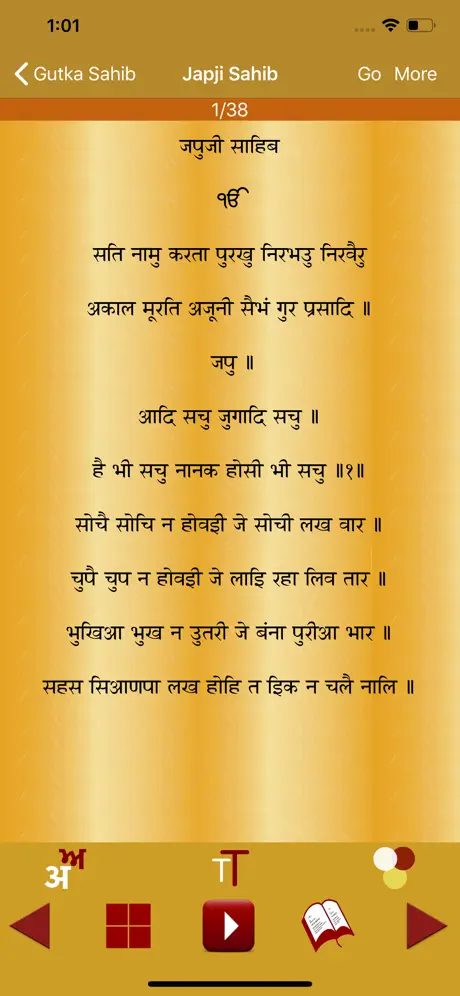 1:01
Gutka Sahib
Japji Sahib
Go More
1/38
जपुजी साहिब
ੴ
सति नामु करता पुरखु निरभउ निरवैरु
अकाल मूरति अजूनी सैभं गुर प्रसादि ॥
जपु ॥
आदि सचु जुगादि सचु ॥
है भी सचु नानक होसी भी सचु ॥१॥
सोचै सोचि न होवई जे सोची लख वार ॥
चुपै चुप न होवई जे लाइ रहा लिव तार ॥
भुखिआ भुख न उतरी जे बंना पुरीआ भार ॥
सहस सिआणपा लख होहि त इक न चलै नालि ॥
अ ਅ
TT